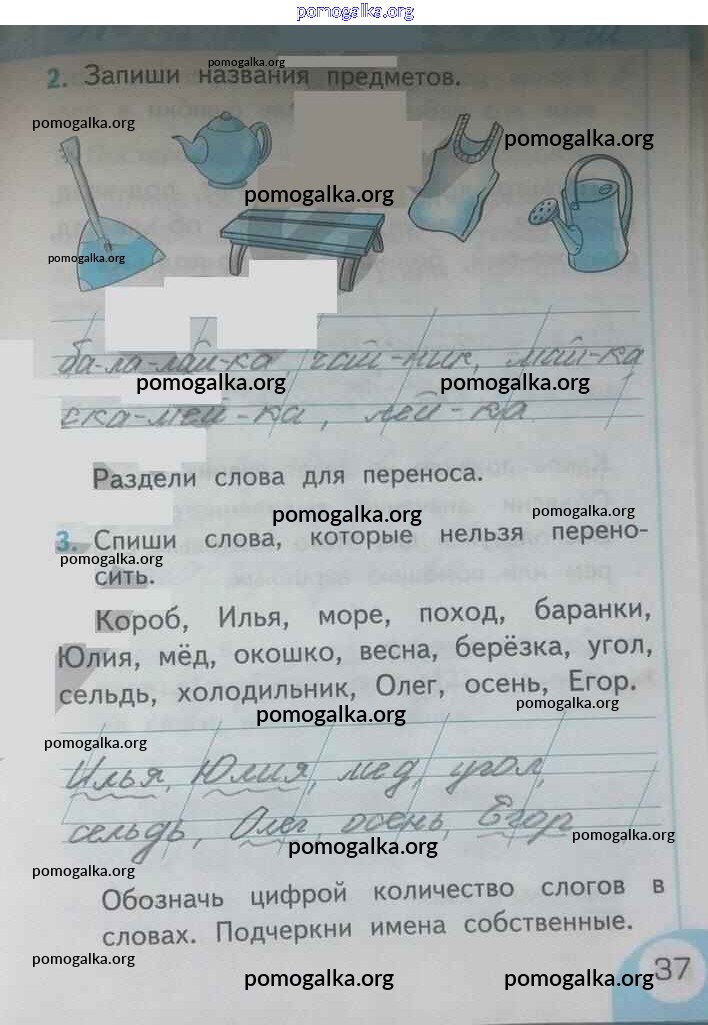 pomogalka.org
pomogalka.org
2. Запиши названия предметов.
pomogalka.org
pomogalka.org
pomogalka.org
pomogalka.org
ба-ла-лай-ка, чай-ник, май-ка
pomogalka.org pomogalka.org
ска-мей-ка, лей-ка.
Раздели слова для переноса.
pomogalka.org pomogalka.org
3. Спиши слова, которые нельзя перено-
pomogalka.org
сить.
Короб, Илья, море, поход, баранки,
Юлия, мёд, окошко, весна, берёзка, угол,
сельдь, холодильник, Олег, осень, Егор.
pomogalka.org pomogalka.org
pomogalka.org
Илья, Юлия, мед, угол,
сельдь, Олег, осень, Егор
pomogalka.org pomogalka.org
pomogalka.org
Обозначь цифрой количество слогов в
словах. Подчеркни имена собственные.
pomogalka.org
37
pomogalka.org pomogalka.org